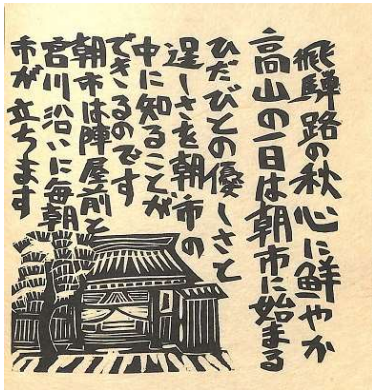 飛騨路の秋心に鮮やか
高山の一日は朝市に始まる
ひだびとの優しさと
逞しさを朝市の
中に知ることが
できるのです
朝市は陣屋前と
宮川沿いに毎朝
市が立ちます